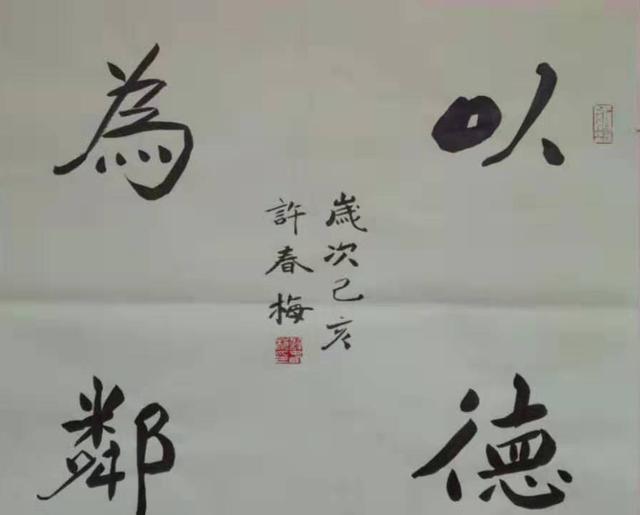 以德
為鄰
歲次己亥
許春梅